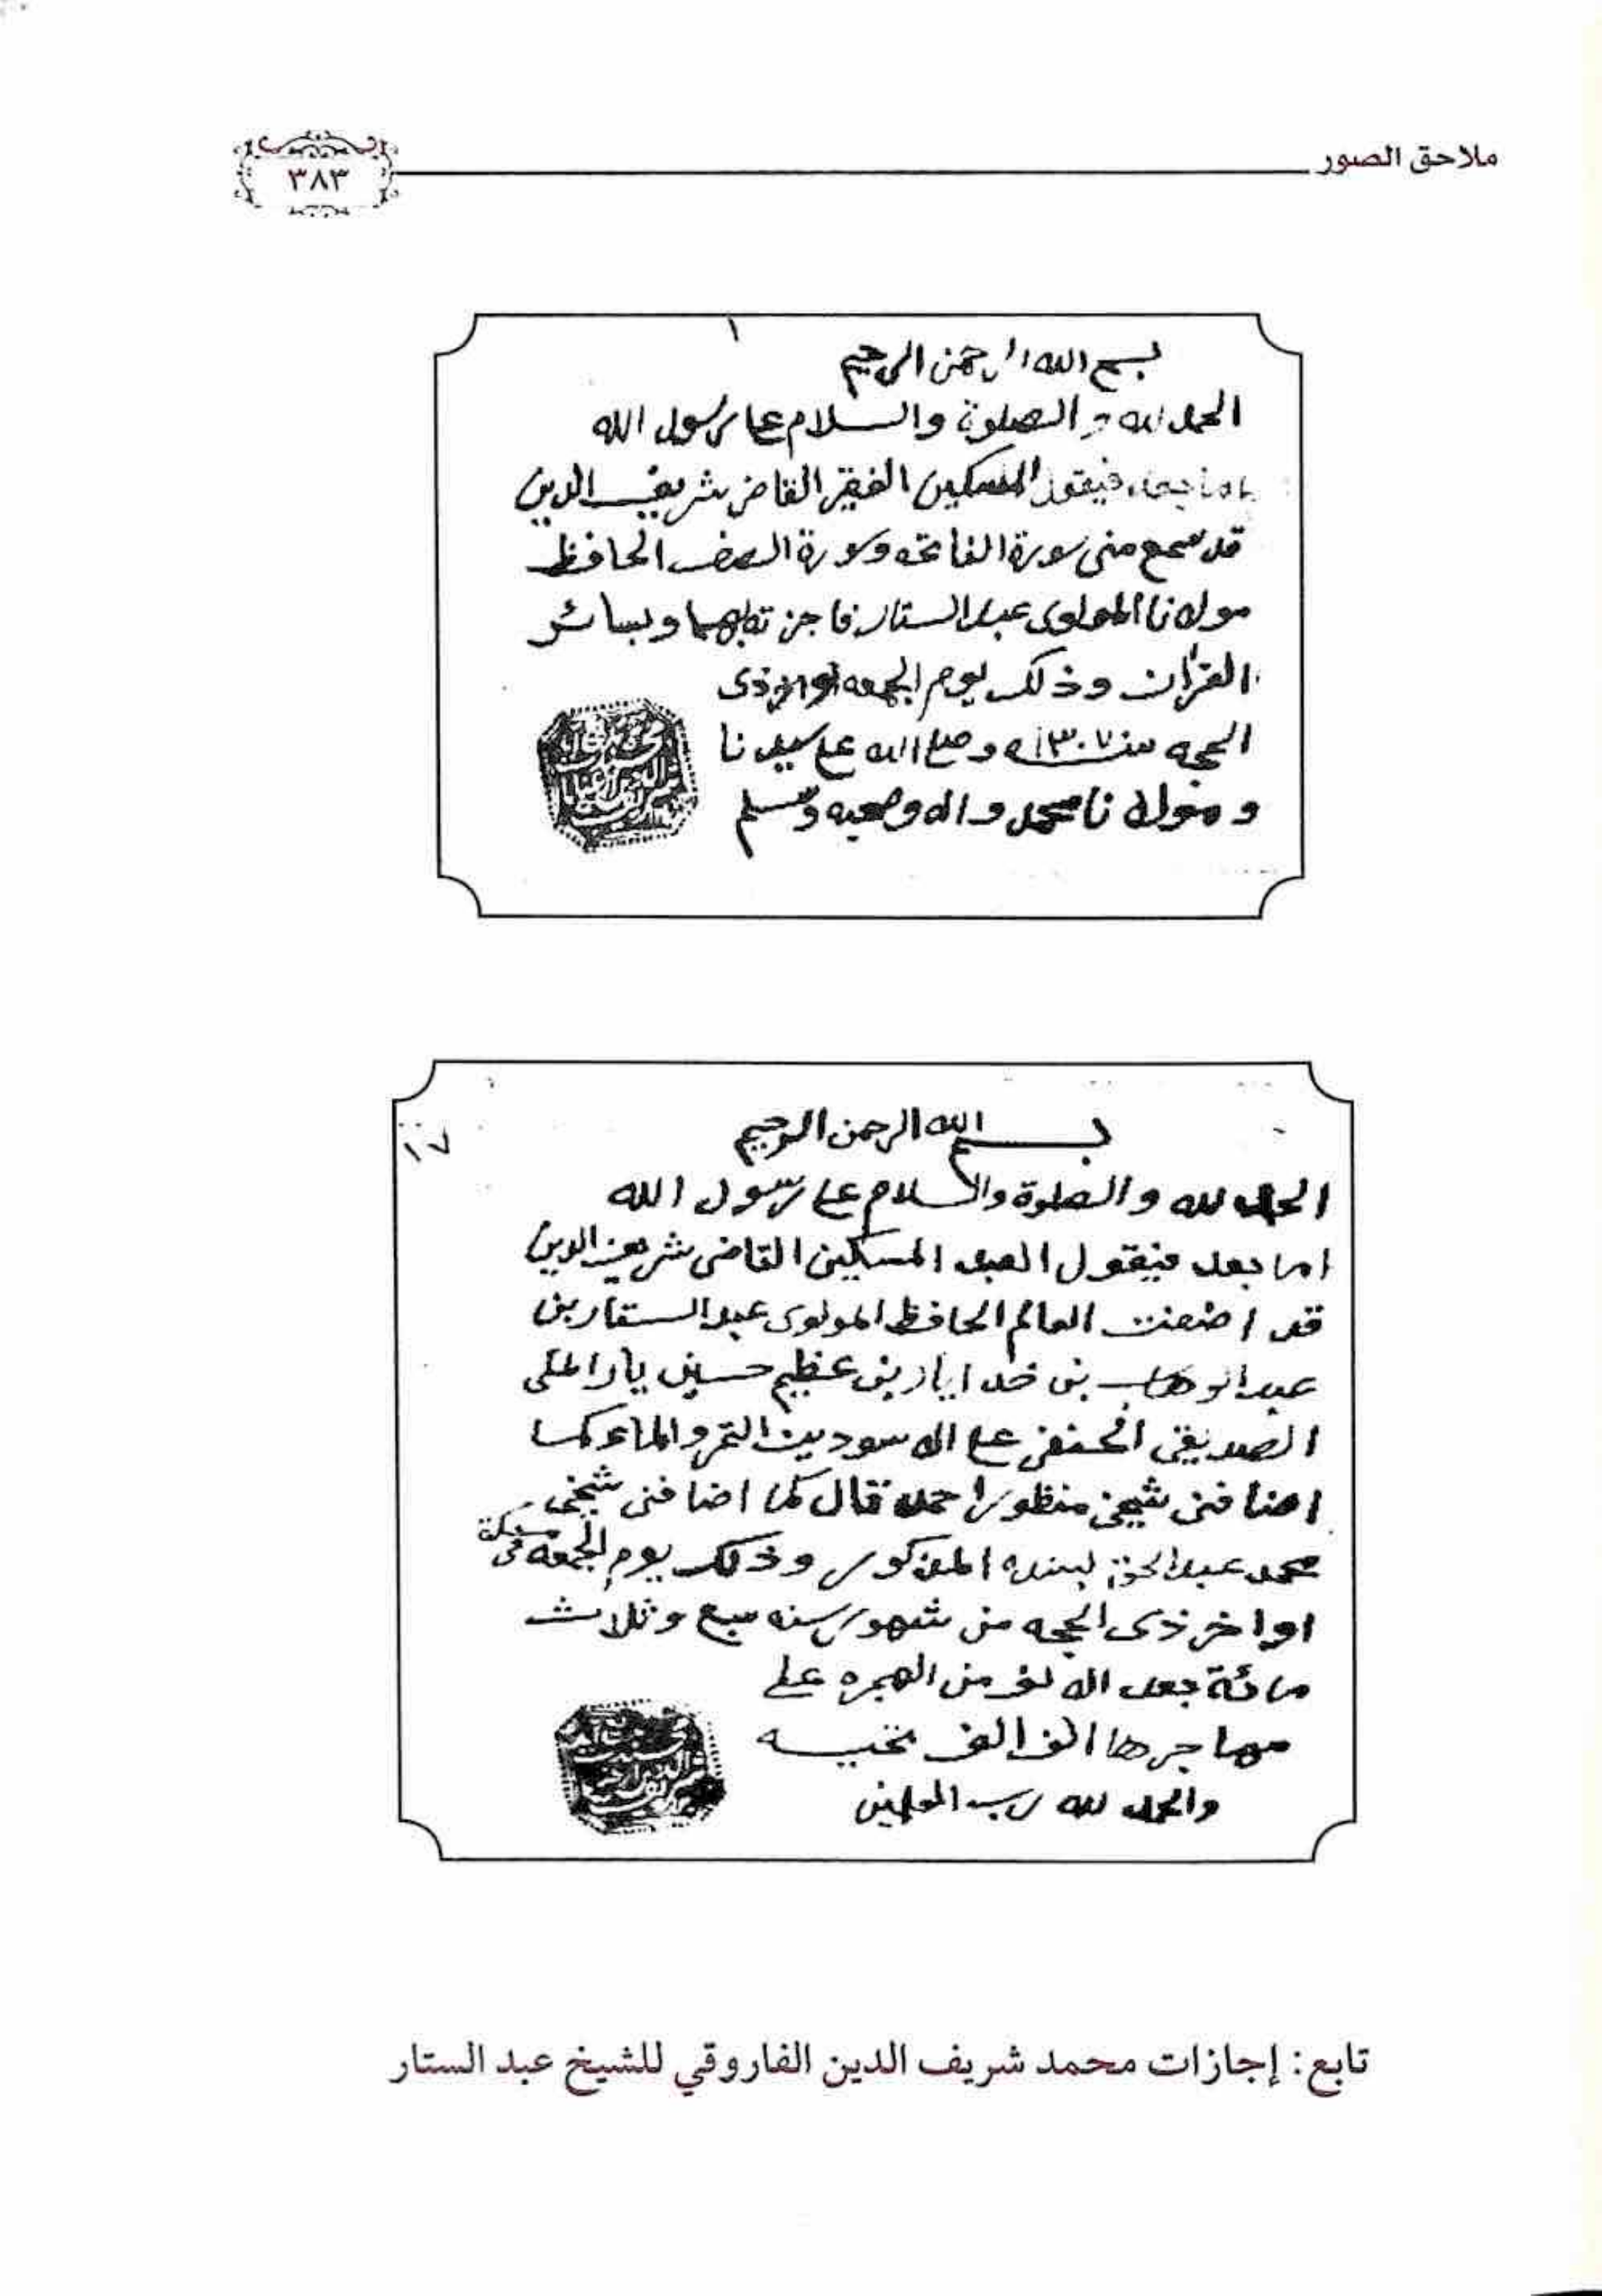 ملاحق الصور
٣٨٣
١
بسم الله الرحمن الرحيم
الحمد لله و الصلوة والسلام على رسول الله
اما بعد فيقول المسكين الفقير القاضى شريف الدين
قد سمع منى سورة الفاتحه وسورة الصف الحافظ
مولانا المولوى عبد الستار فاجزته بهما وبسائر
القرأن وذلك يوم الجمعه ذى
الحجه سنه ١٣٠٧ه وصلى الله على سيدنا
و مولانا محمد واله وصحبه وسلم
١٧
بسم الله الرحمن الرحيم
الحمد لله والصلوة والسلام على رسول الله
اما بعد فيقول العبد المسكين القاضى شريف الدين
قد اضفت العالم الحافظ المولوى عبد الستار بن
عبد الوهاب بن خدا يار بن عظيم حسين يار المكى
الصديقى الحنفى على الاسودين التمر والماء كما
اضافنى شيخى منظور احمد قال كما اضافنى شيخى
محمد عبد الحق بسنده المذكور وذلك يوم الجمعه فى مكة
اواخر ذى الحجه من شهور سنه سبع وثلاث
مائة بعد الالف من الهجره على
مهاجرها الف الف تحيه
والحمد لله رب العلمين
تابع: إجازات محمد شريف الدين الفاروقي للشيخ عبد الستار